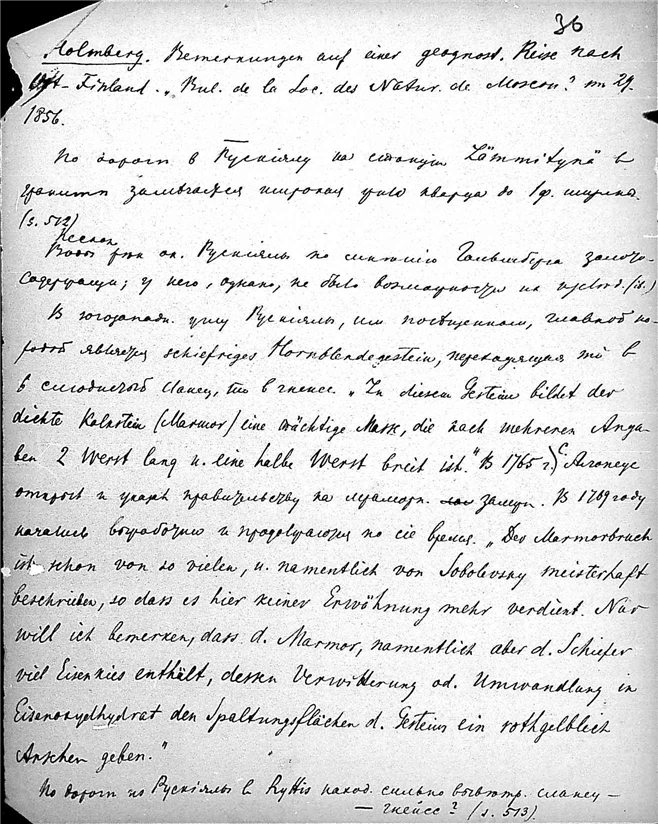 36
Holmberg. Bemerkungen auf einer geognost. Reise nach
Ost-Finland. „Bul. de la Soc. des Natur. de Moscou." 
1856.
По дороге в Рускіялу на станціи Lämmitynä в
гранити замѣчается широкая жила кварца до 1ф. ширины.
(s. 512)
Пески
рѣки ок. Рускіялы по мнѣнію Гольмберга золото-
содержащи; у него, однако, не было возможности их изслѣд. (ib.)
В югозападн. углу Рускіялы, им посѣщенном, главной по-
родой является schiefriges Hornblendegestein, переходящая то в
в слюдистый сланец, то в гнейсс. „In diesem Gestein bildet der
dichte Kalkstein (Marmor) eine mächtige Masse, die nach mehreren Anga-
ben 2 Werst lang u. eine halbe Werst breit ist." В 1765 г. С. Алопеус
открыл и указал правительству на мрамор. залежи. В 1769 году
началась выработка и продолжается по сіе время. „Des Marmorbruch
ist schon von so vielen, u. namentlich von Sobolevsky meisterhaft
beschrieben, so dass es hier keiner Erwöhnung mehr verdient. Nur
will ich bemerken, dass d. Marmor, namentlich aber d. Schiefer
viel Eisenkies enthält, dessen Verwitterung od. Umwandlung in
Eisenoxydhydrat den Spaltungsflächen d. Gesteins ein rothgelblich
Ansehen geben."
По дороге из Рускіялы в наход. сильно вывѣтр. сланец –
– гнейсс? (s. 513).